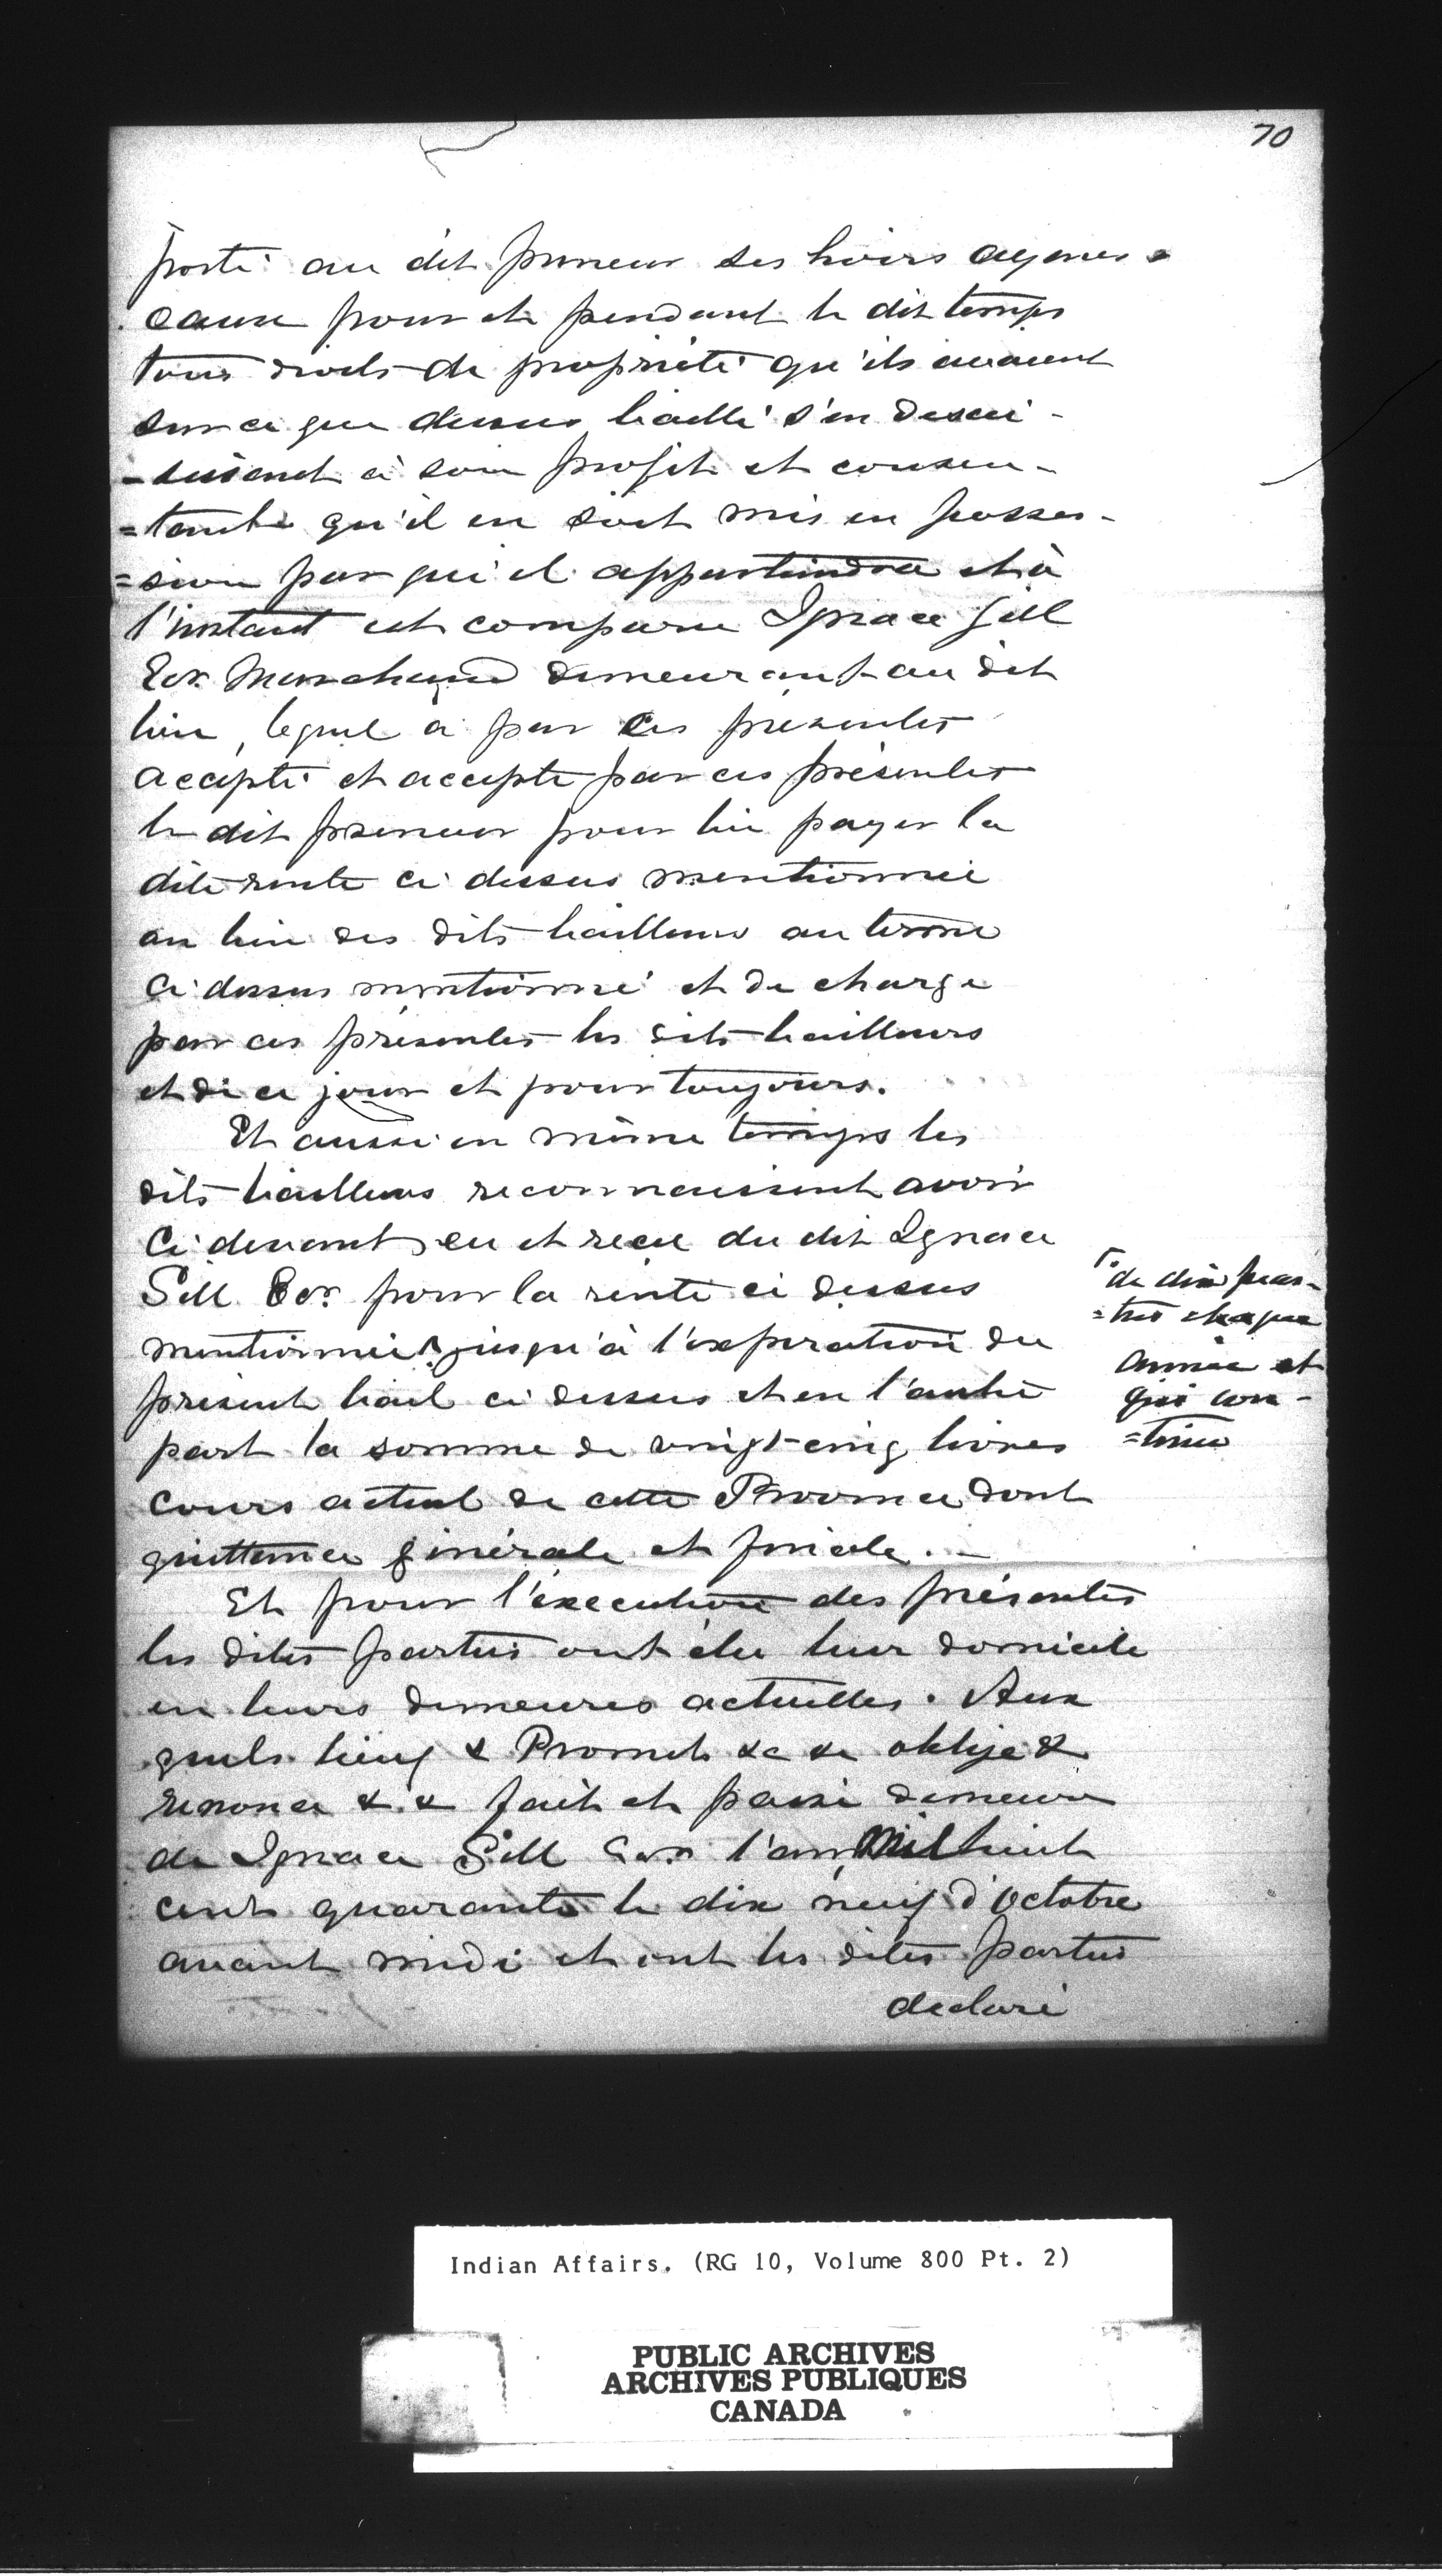 70
porté au dit preneur ses hoirs ayones
cause pour et pendant le dit temps
tous droits de propriété qu'ils avaient
sur ce que dessus baillé s'en dessai-
-sissant à son profit et consen-
=tant qu'il en soit mis en posses-
=sion par qui il appartiendra et à
l'instant est comparu Ignace Gill
Ecr. Marchand demeurant au dit
lieu, lequel a par ces présentes
accepté et accepte par ces présentes
le dit preneur pour lui payer la
dite rente ci dessus mentionnée
au lieu des dits bailleurs au terme
ci dessus mentionné et decharge
par ces présentes les dits bailleurs
et de ce jour et pour toujours.
Et aussi en même temps les
dits bailleurs reconnaissent avoir
ci devant eu et reçu du dit Ignace
Gill Ecr. pour la rente ci dessus
mentionnée jusqu'à l'expiration du
présent bail ci dessus et en l'autre
part la somme de vingt-cinq livres
cours actuel de cette Province dont
quittance générale et finale. —
de dix pias-
=tres chaque
année et
qui con-
=tinue
Et pour l'execution des présentes
les dites parties ont élu leur domicile
en leurs demeures actuelles. Aux
quels lieux & Promet &c se oblige &
renonce & & fait et passé demeure
de Ignace Gill Ecr. l'an Mil huit
cent quarante le dix neuf d'Octobre
avant midi et ont les dites parties
declaré
Indian Affairs. (RG 10, Volume 800 Pt. 2)
PUBLIC ARCHIVES
ARCHIVES PUBLIQUES
CANADA